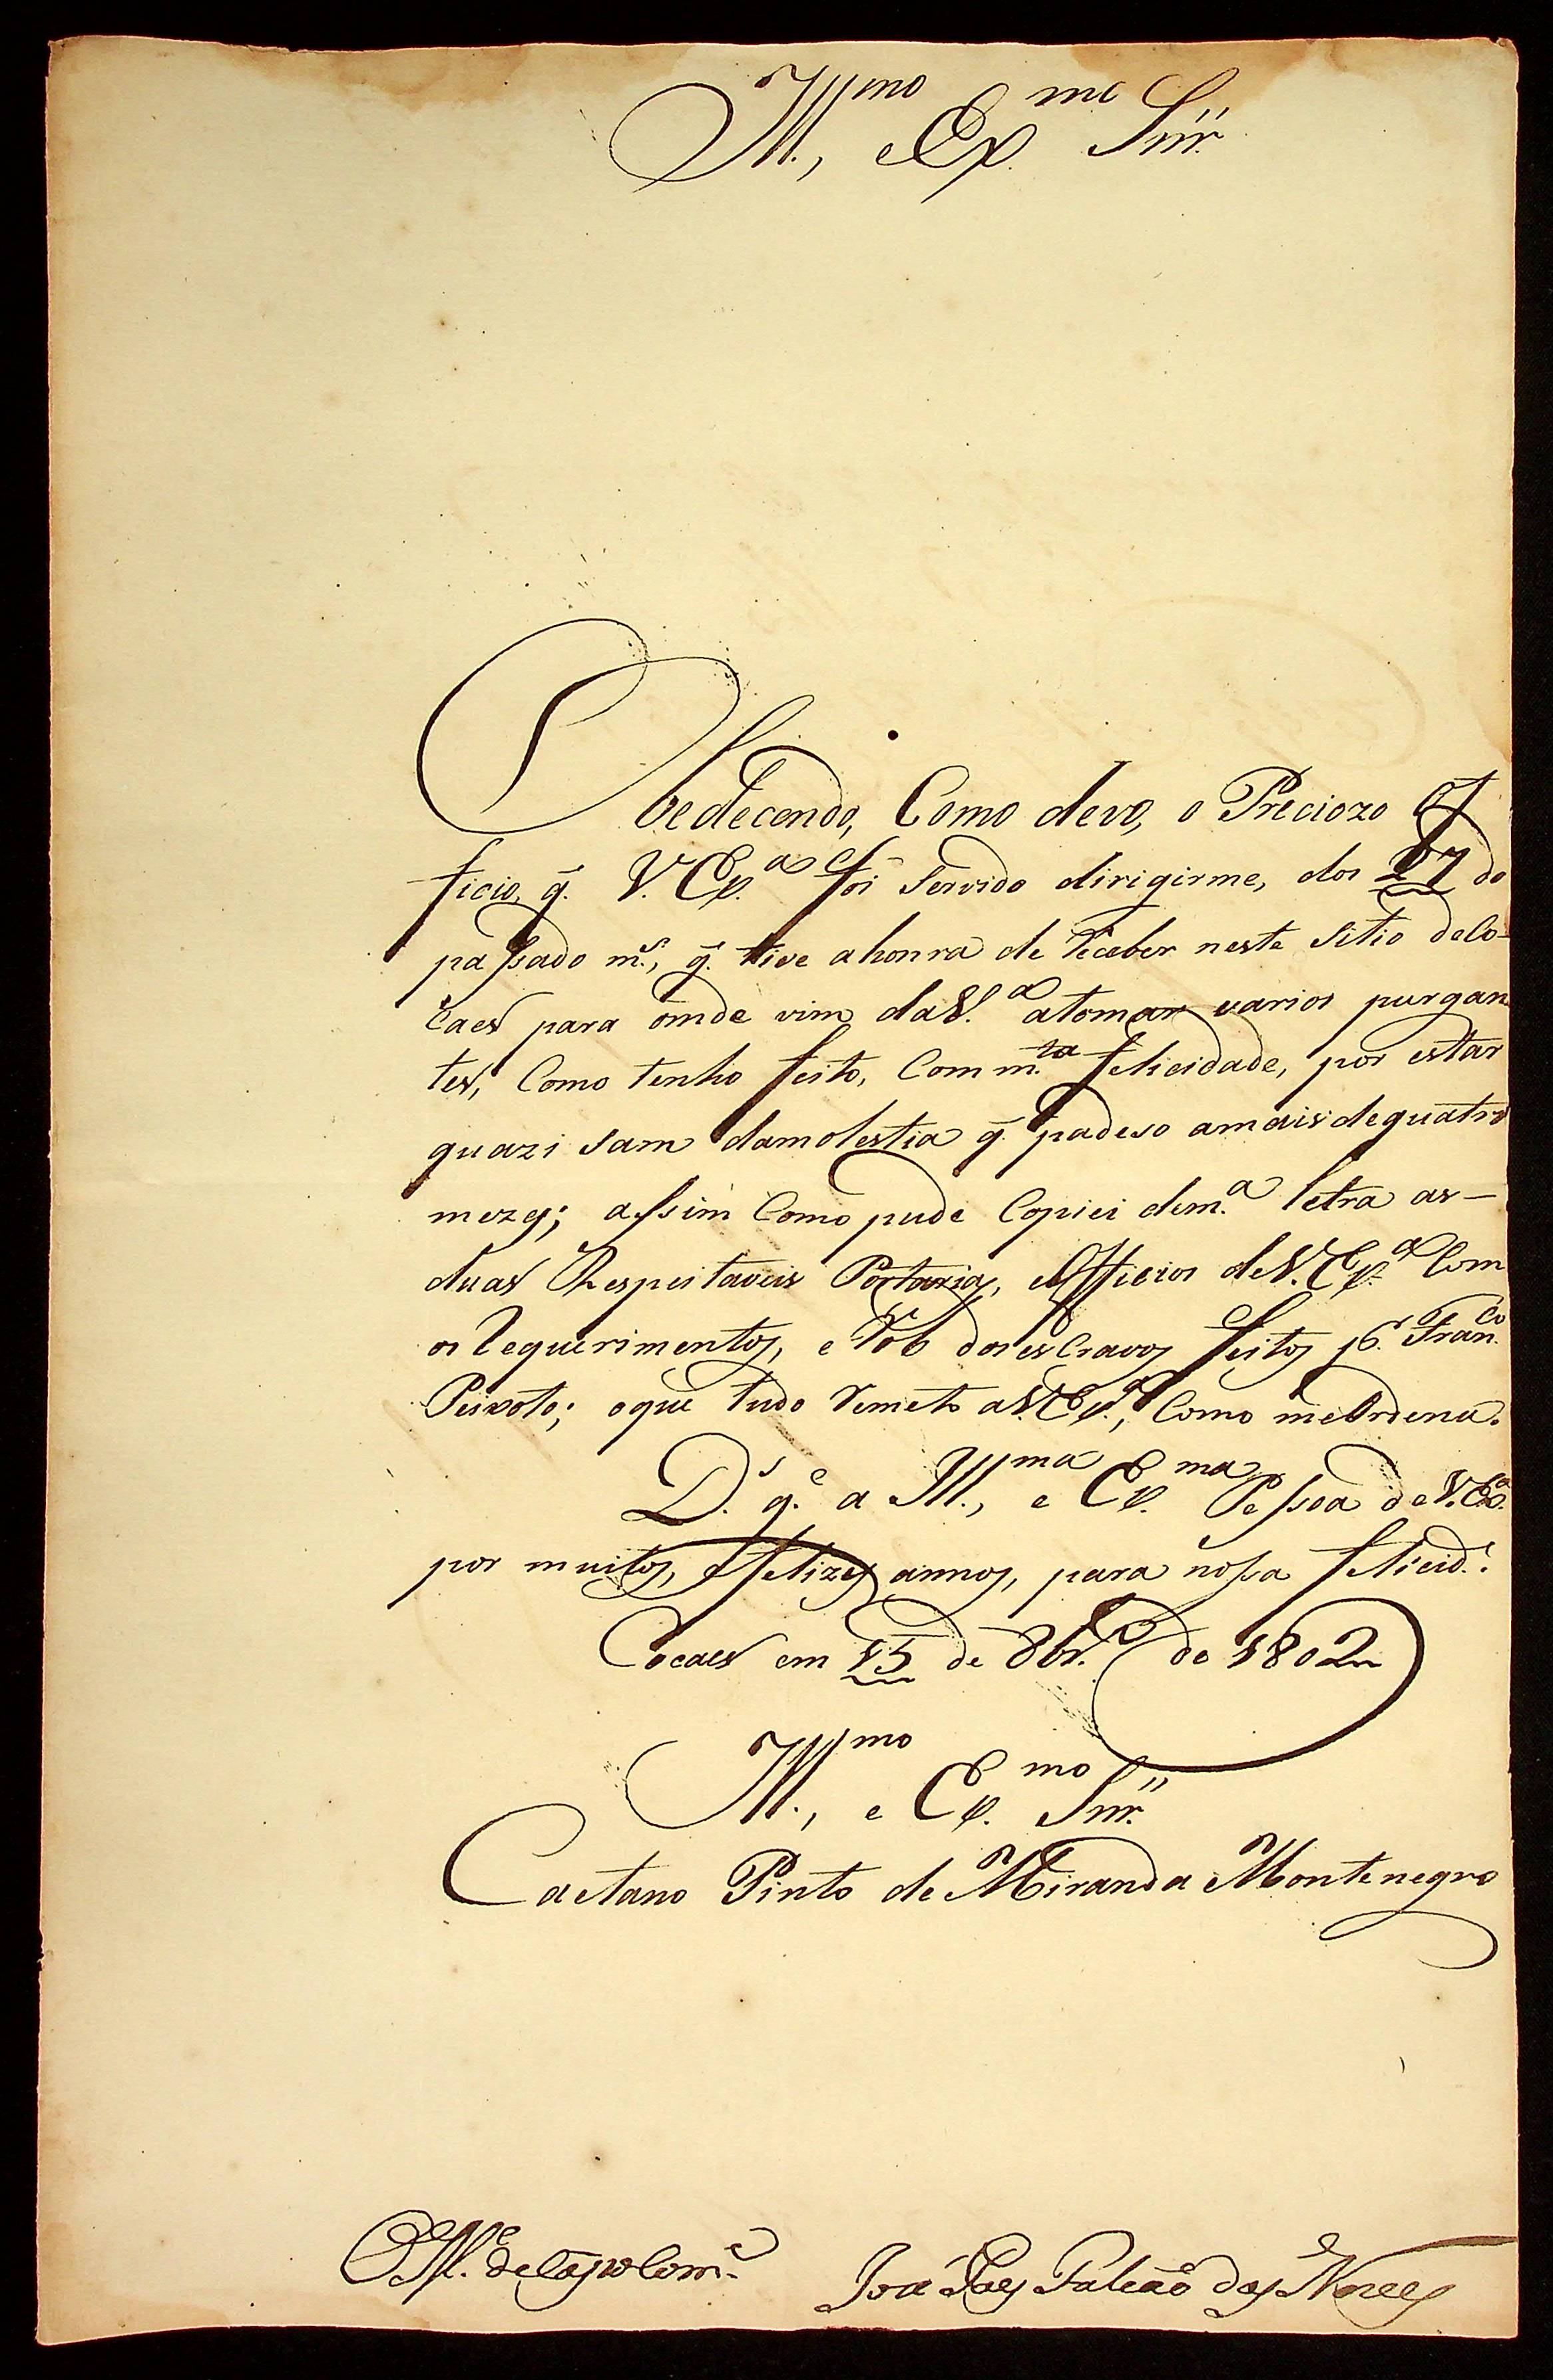 Ill.mo, e Ex.mo Snr.
Obedecendo, Como devo, o Preciozo Of
ficio, q̃. V. Ex.a foi Servido dirigirme, dos 27 do
passado m.s, q̃. tive ahonra de receber neste Sitio deCo-
caes para onde vim daV.a atomar varios purgan
tes, Como tenho feito, Com m.ta felicidade, por estar
quazi Sam damolestia q̃. padeso amais dequatro
mezes; assim Como pude Copiei dem.a letra as-
duas Respeitaveis Portarias, eOfficios deV. Ex.a Com
os requerimentos, e rób dos esCravos feitos p.r Fran.co
Peixoto; oque tudo remeto aV. Ex.a, Como meOrdena.
D.s g.e a Ill.ma, e Ex.ma Pessoa deV. Ex.a
por muitos, e felizes annos, para nossa felicid.e:
Cocaes em 15 de 8br.o de 1802
Ill.mo, e Ex.mo Snr.
Caetano Pinto de Miranda Montenegro
O M.e deCãpo Com.e
José Paes Falcão das Neves